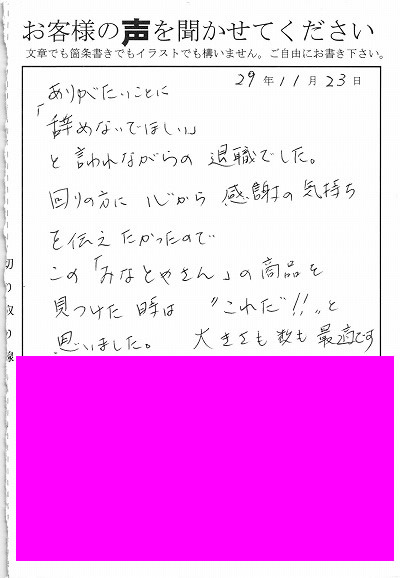 お客様の声を聞かせてください
文章でも箇条書きでもイラストでも構いません。ご自由にお書き下さい。
29年11月23日
ありがたいことに
「辞めないでほしい」
と言われながらの退職でした。
回りの方に心から感謝の気持ち
を伝えたかったので
この「みなとやさん」の商品を
見つけた時は〝これだ!!〟と
思いました。 大きさも数も最適です
切り取り線